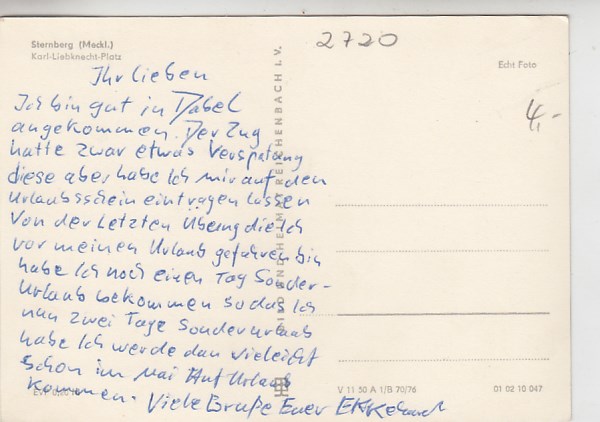 Sternberg (Meckl.)
Karl-Liebknecht-Platz
2720
Echt Foto
4,-
Ihr lieben
Ich bin gut in Dabel
angekommen. Der Zug
hatte zwar etwas Verspätung
diese aber habe Ich mir auf den
Urlaubsschein eintragen lassen
Von der Letzten Übung die Ich
vor meinen Urlaub gefahren bin
habe Ich noch einen Tag Sonder-
Urlaub bekommen so das Ich
nun zwei Tage Sonderurlaub
habe Ich werde dan vieleicht
schon im Mai Auf Urlaub
kommen. Viele Grüße Euer Ekkehard
BILD UND HEIMAT REICHENBACH I. V.
V 11 50 A 1/B 70/76
01 02 10 047